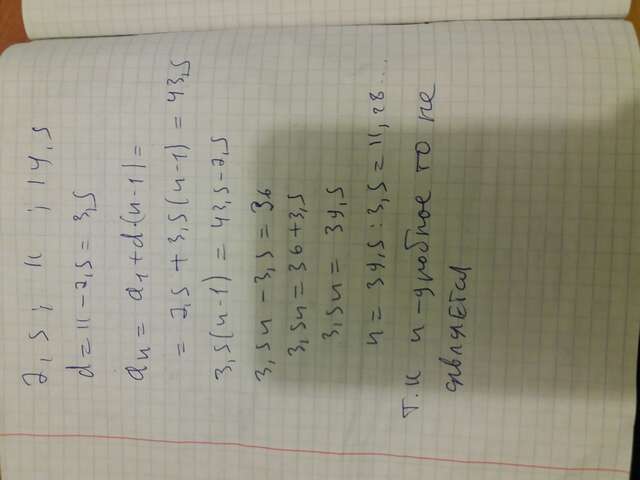 7,5; 11; 14,5
d=11-7,5=3,5
an= a1+d·(n-1)=
= 7,5+3,5(n-1)=43,5
3,5(n-1)=43,5-7,5
3,5n-3,5=36
3,5n=36+3,5
3,5n=39,5
n=39,5:3,5=11,28...
Т.к n-дробное то не
является